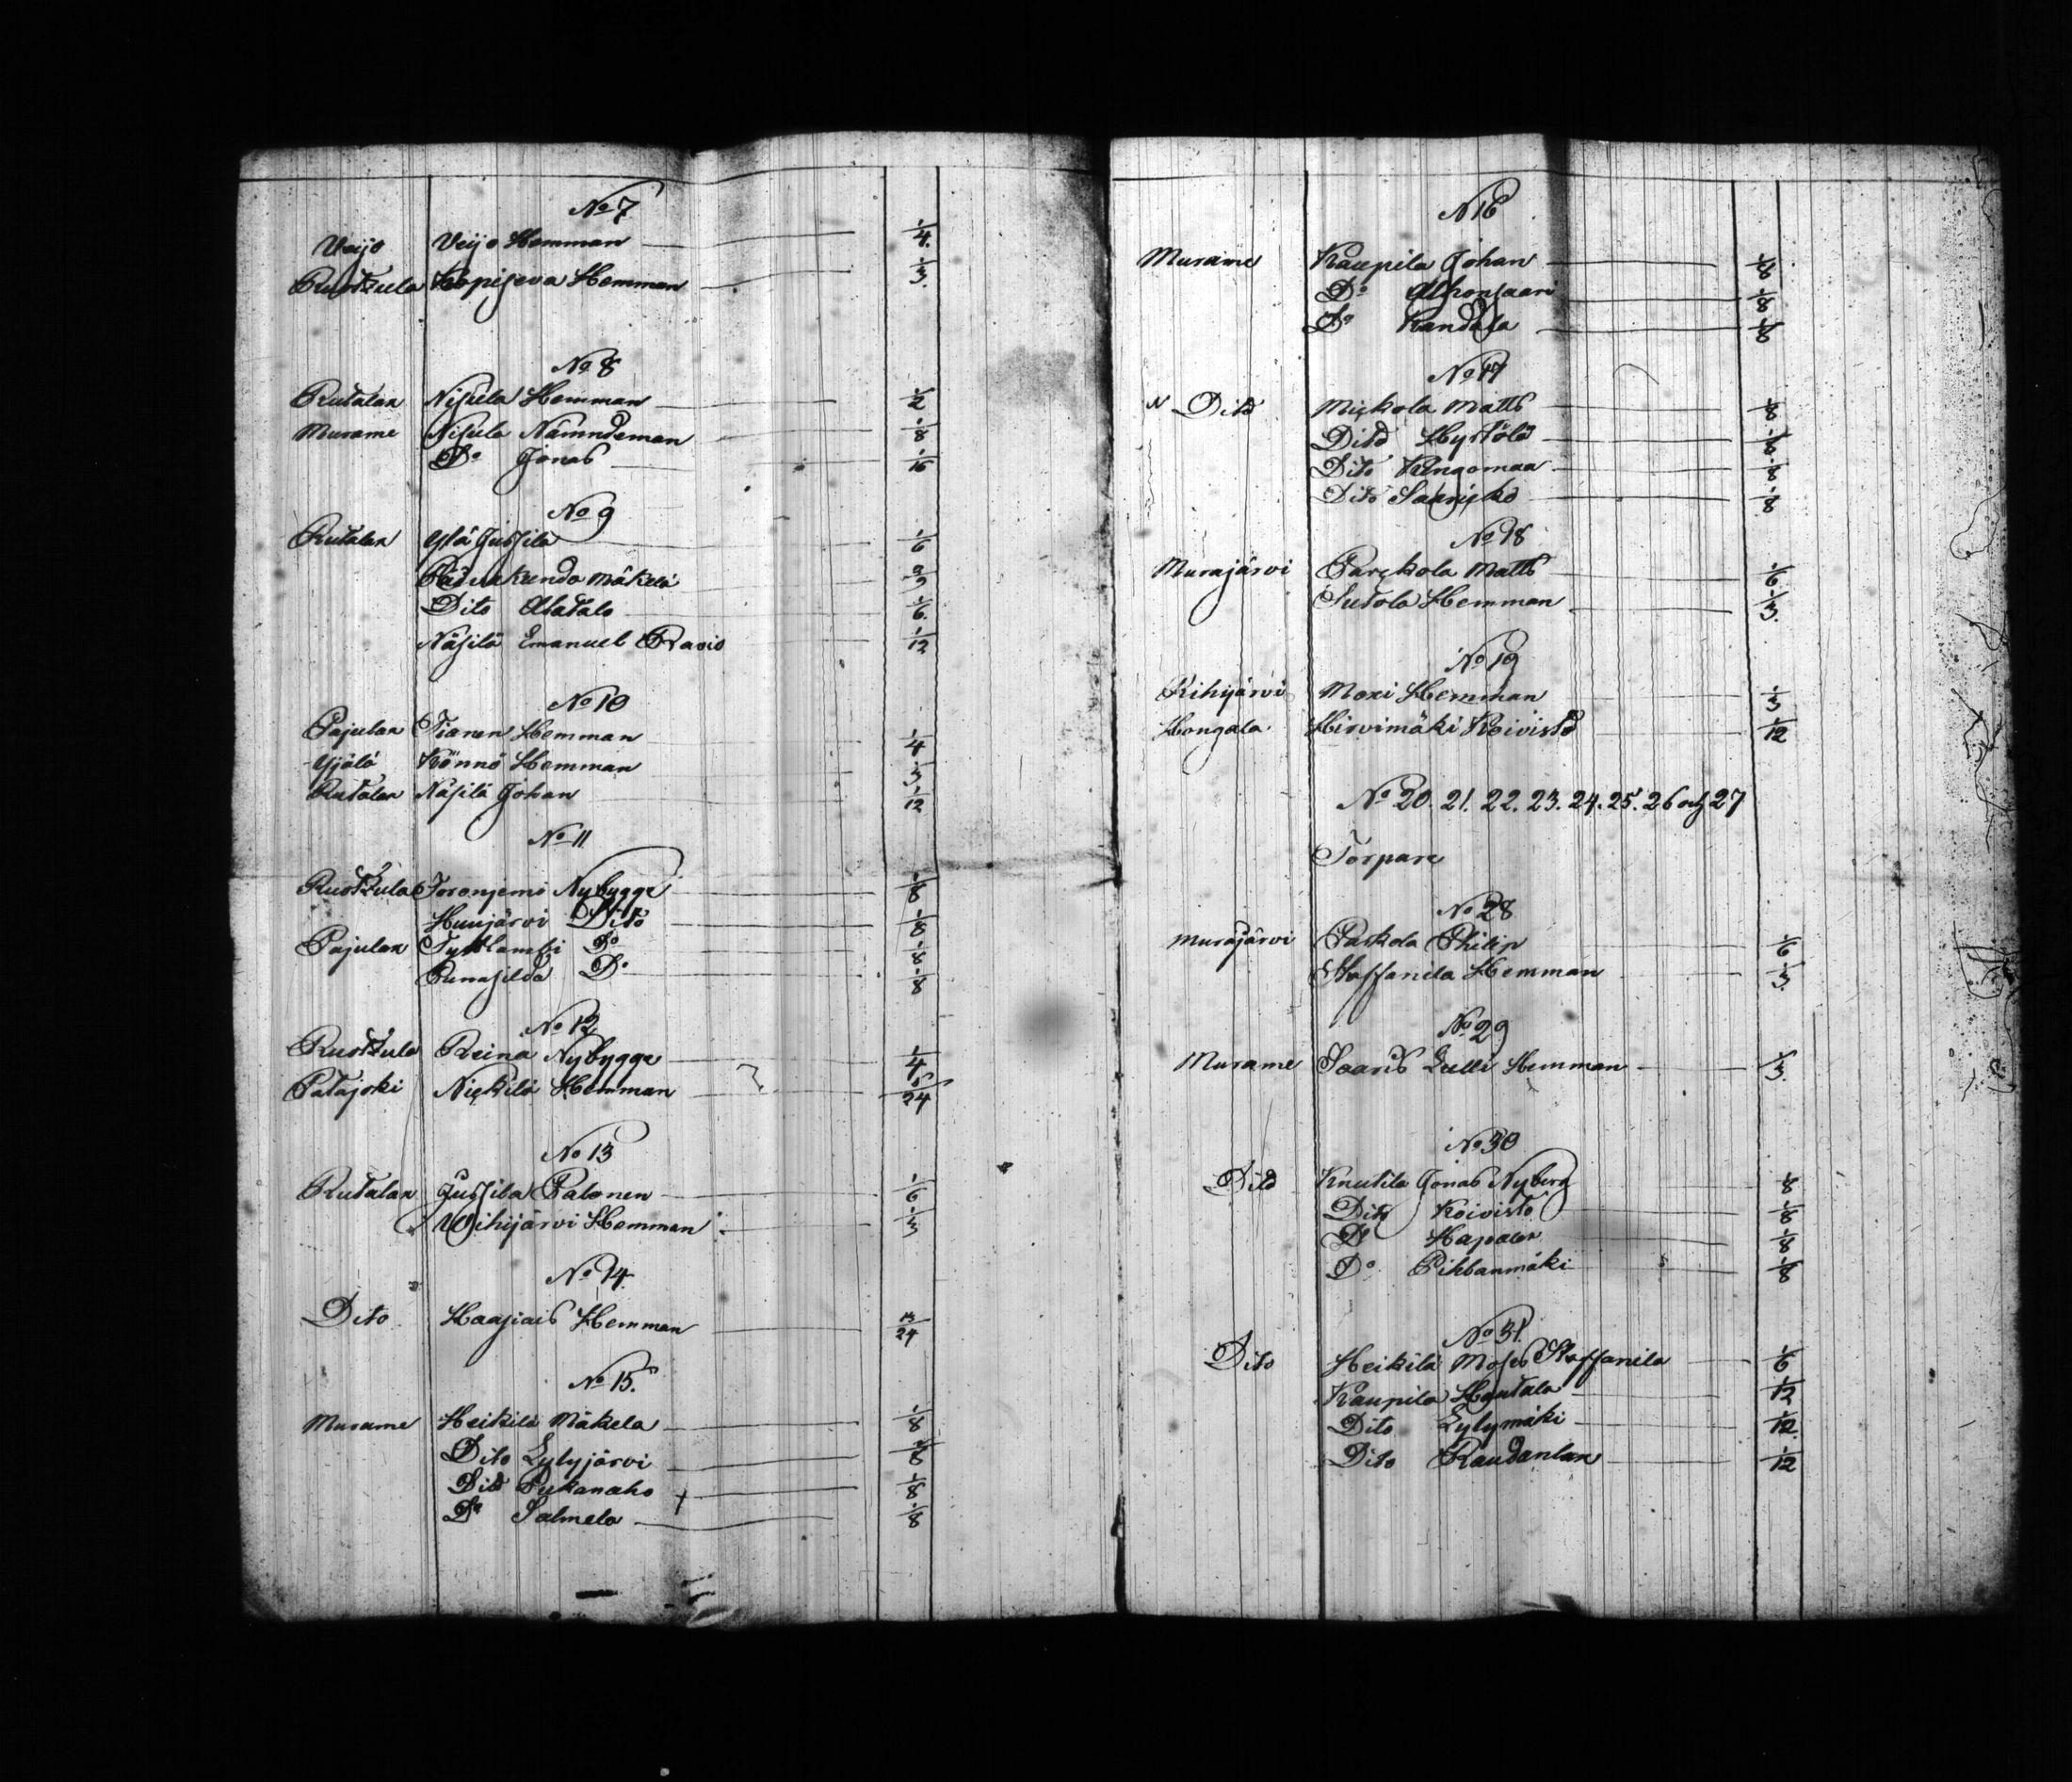 No 7
Veijo Veijo Hemman 1/4.
Ruotzula Kopiseva Hemman 1/3.
No 8
Rutalax Nisula Hemman 1/2
Murame Nisula Nämndeman 1/8
Do Jonas 1/16
No 9
Rutalax Ylä Jussila 1/6
Mäkelä 2/9
Dito Alatalo 1/6.
Näsilä Emanuel 1/12
No 10
Pajulax Tianen Hemman 1/4
Yijälä Könnö Hemman 1/3
Rutalax Näsilä Johan 1/12
No 11
Ruotzula Toronjemi Nybygge 1/8
Huujärvi Dito 1/8
Pajulax Do 1/8
Punasilda Do 1/8
No 12
Ruotzula Reina Nybygge 1/4
Patajoki Nickilä Hemman 5/24
No 13
Rutalax Jussila Palonen 1/6
Wihijärvi Hemman 1/3
No 14.
Dito Haajiais Hemman 13/24
No 15.
Murame Heikilä Mäkela 1/8
Dito Lylyjärvi 1/8
Dito Pukanaho 1/8
Do Salmela 1/8
N 16
Murame Kaupila Johan 1/8
Do Ahonsaari 1/8
Do Kandola 1/8
No 17
Dito Mickola Matts 1/8
Dito Hyrtölä 1/8
Dito Kingomaa 1/8
Dito 1/8
No 18
Murajärvi Parckola Matts 1/6
Sutola Hemman 1/3.
No 19
Kihijärvi Moxi Hemman 1/3
Hongala Hirvimäki Koivisto 1/12
No 20. 21. 22. 23. 24. 25. 26 och 27
Torpare
No 28
Murajärvi Parkola Philip 1/6
Staffanila Hemman 1/3.
No 29
Murame Saaris Lulli Hemman 1/3.
No 30
Dito Knutila Jonas Nyberg 1/8
Dito Koivisto 1/8
Do Hapalax 1/8
Do Pihlanmäki 1/8
No 31.
Dito Heikilä Moses Staffanila 1/6
Kaupila Hautala 1/12
Dito Lylymäki 1/12.
Dito Raudanlax 1/12